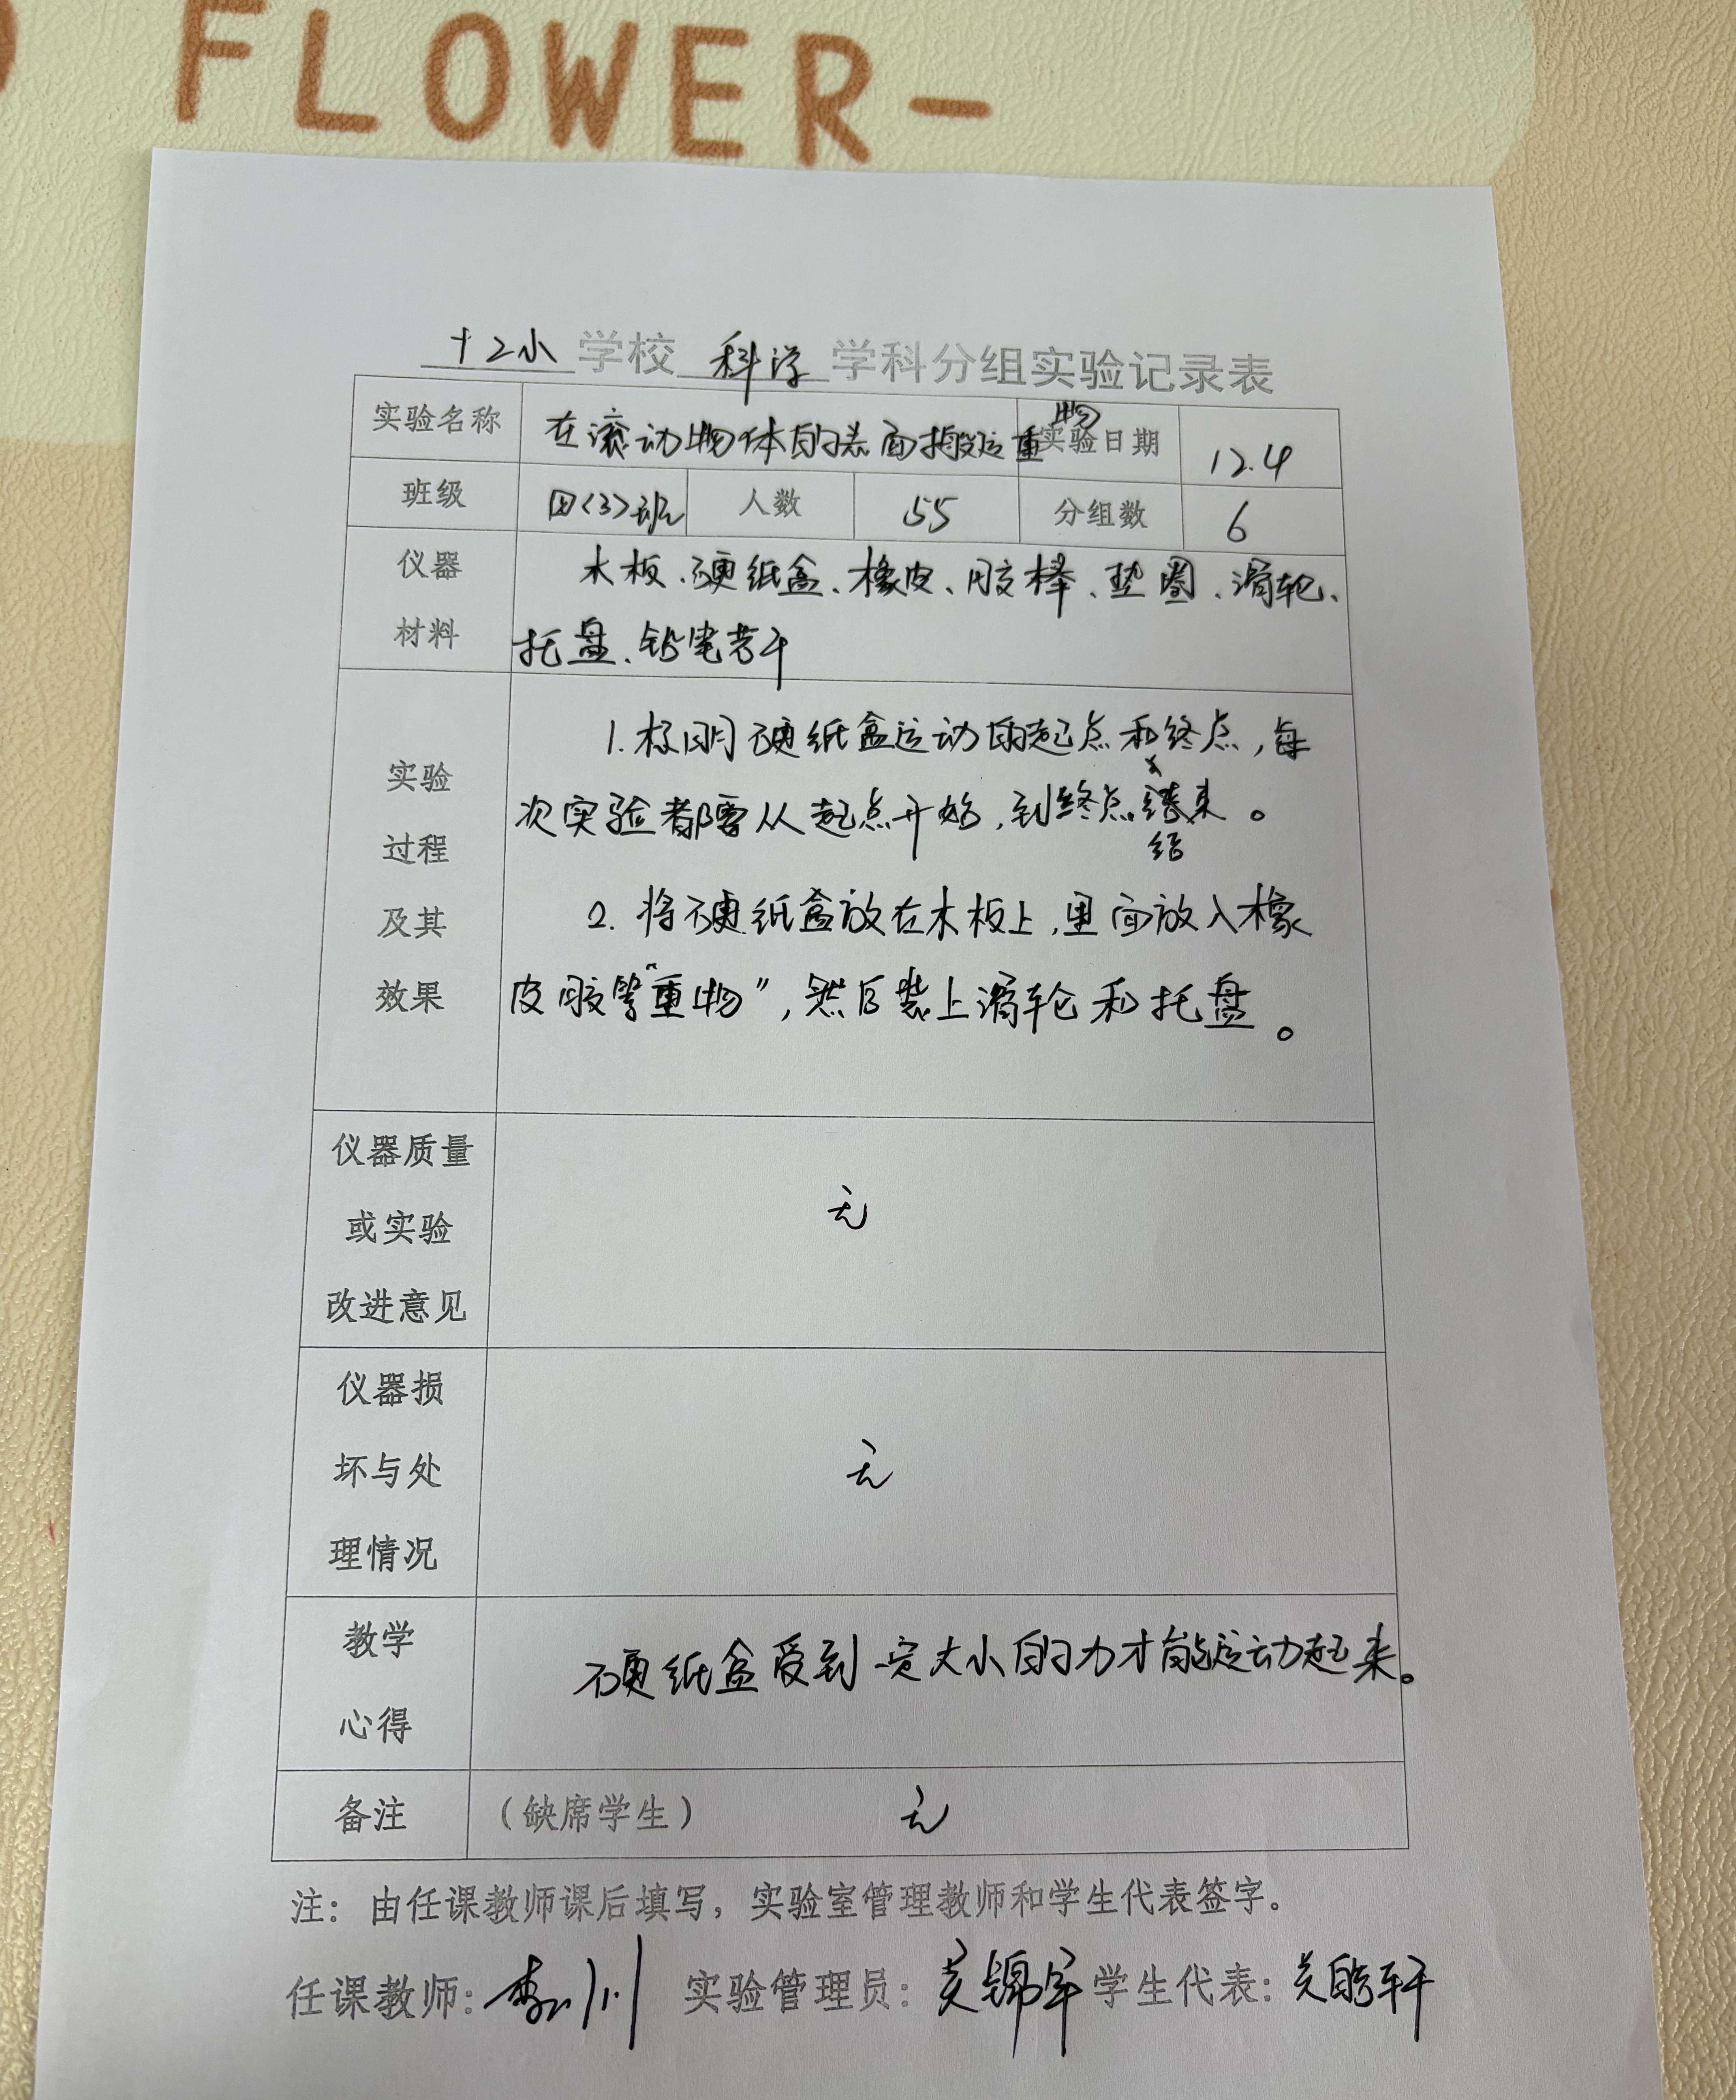 FLOWER-
十2小 学校 科学 学科分组实验记录表
实验名称 在滚动物体的表面搬运重物 实验日期 12.4
班级 四<3>班 人数 55 分组数 6
仪器 木板、硬纸盒、橡皮、胶棒、垫圈、滑轮、
材料 托盘、铅笔若干
1.标明硬纸盒运动的起点和终点,每
实验
次实验都要从起点开始,到终点结束。
过程
结
及其 2.将硬纸盒放在木板上,里面放入橡
效果 皮胶等"重物",然后装上滑轮和托盘。
仪器质量
或实验 无
改进意见
仪器损
坏与处 无
理情况
教学 硬纸盒受到一定大小的力才能运动起来。
心得
备注 (缺席学生) 无
注:由任课教师课后填写,实验室管理教师和学生代表签字。
任课教师: 实验管理员: 学生代表: